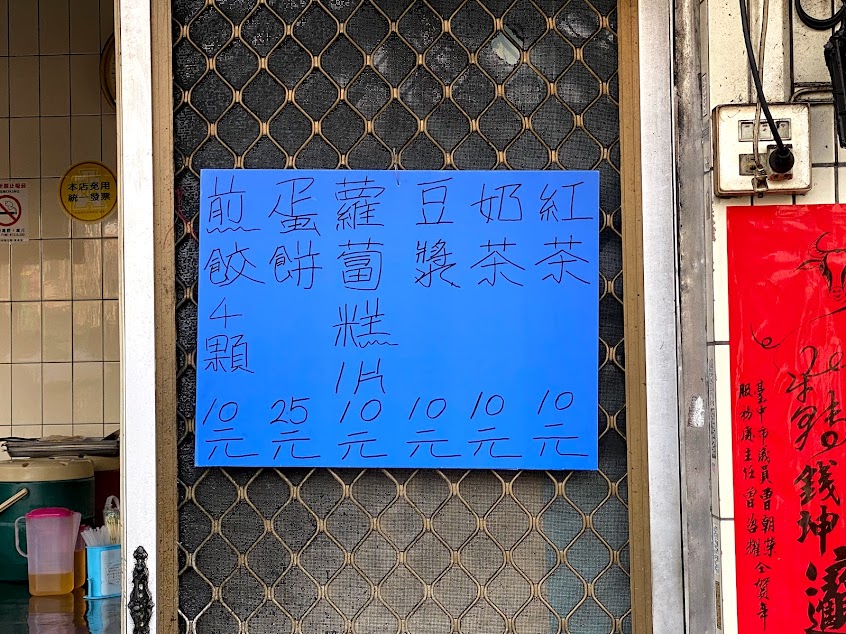 紅茶 10元
奶茶 10元
豆漿 10元
蘿蔔糕1片 10元
蛋餅 25元
煎餃4顆 10元
本店免用
統一發票
臺中市議員曹朝榮全賀年
服務處主任